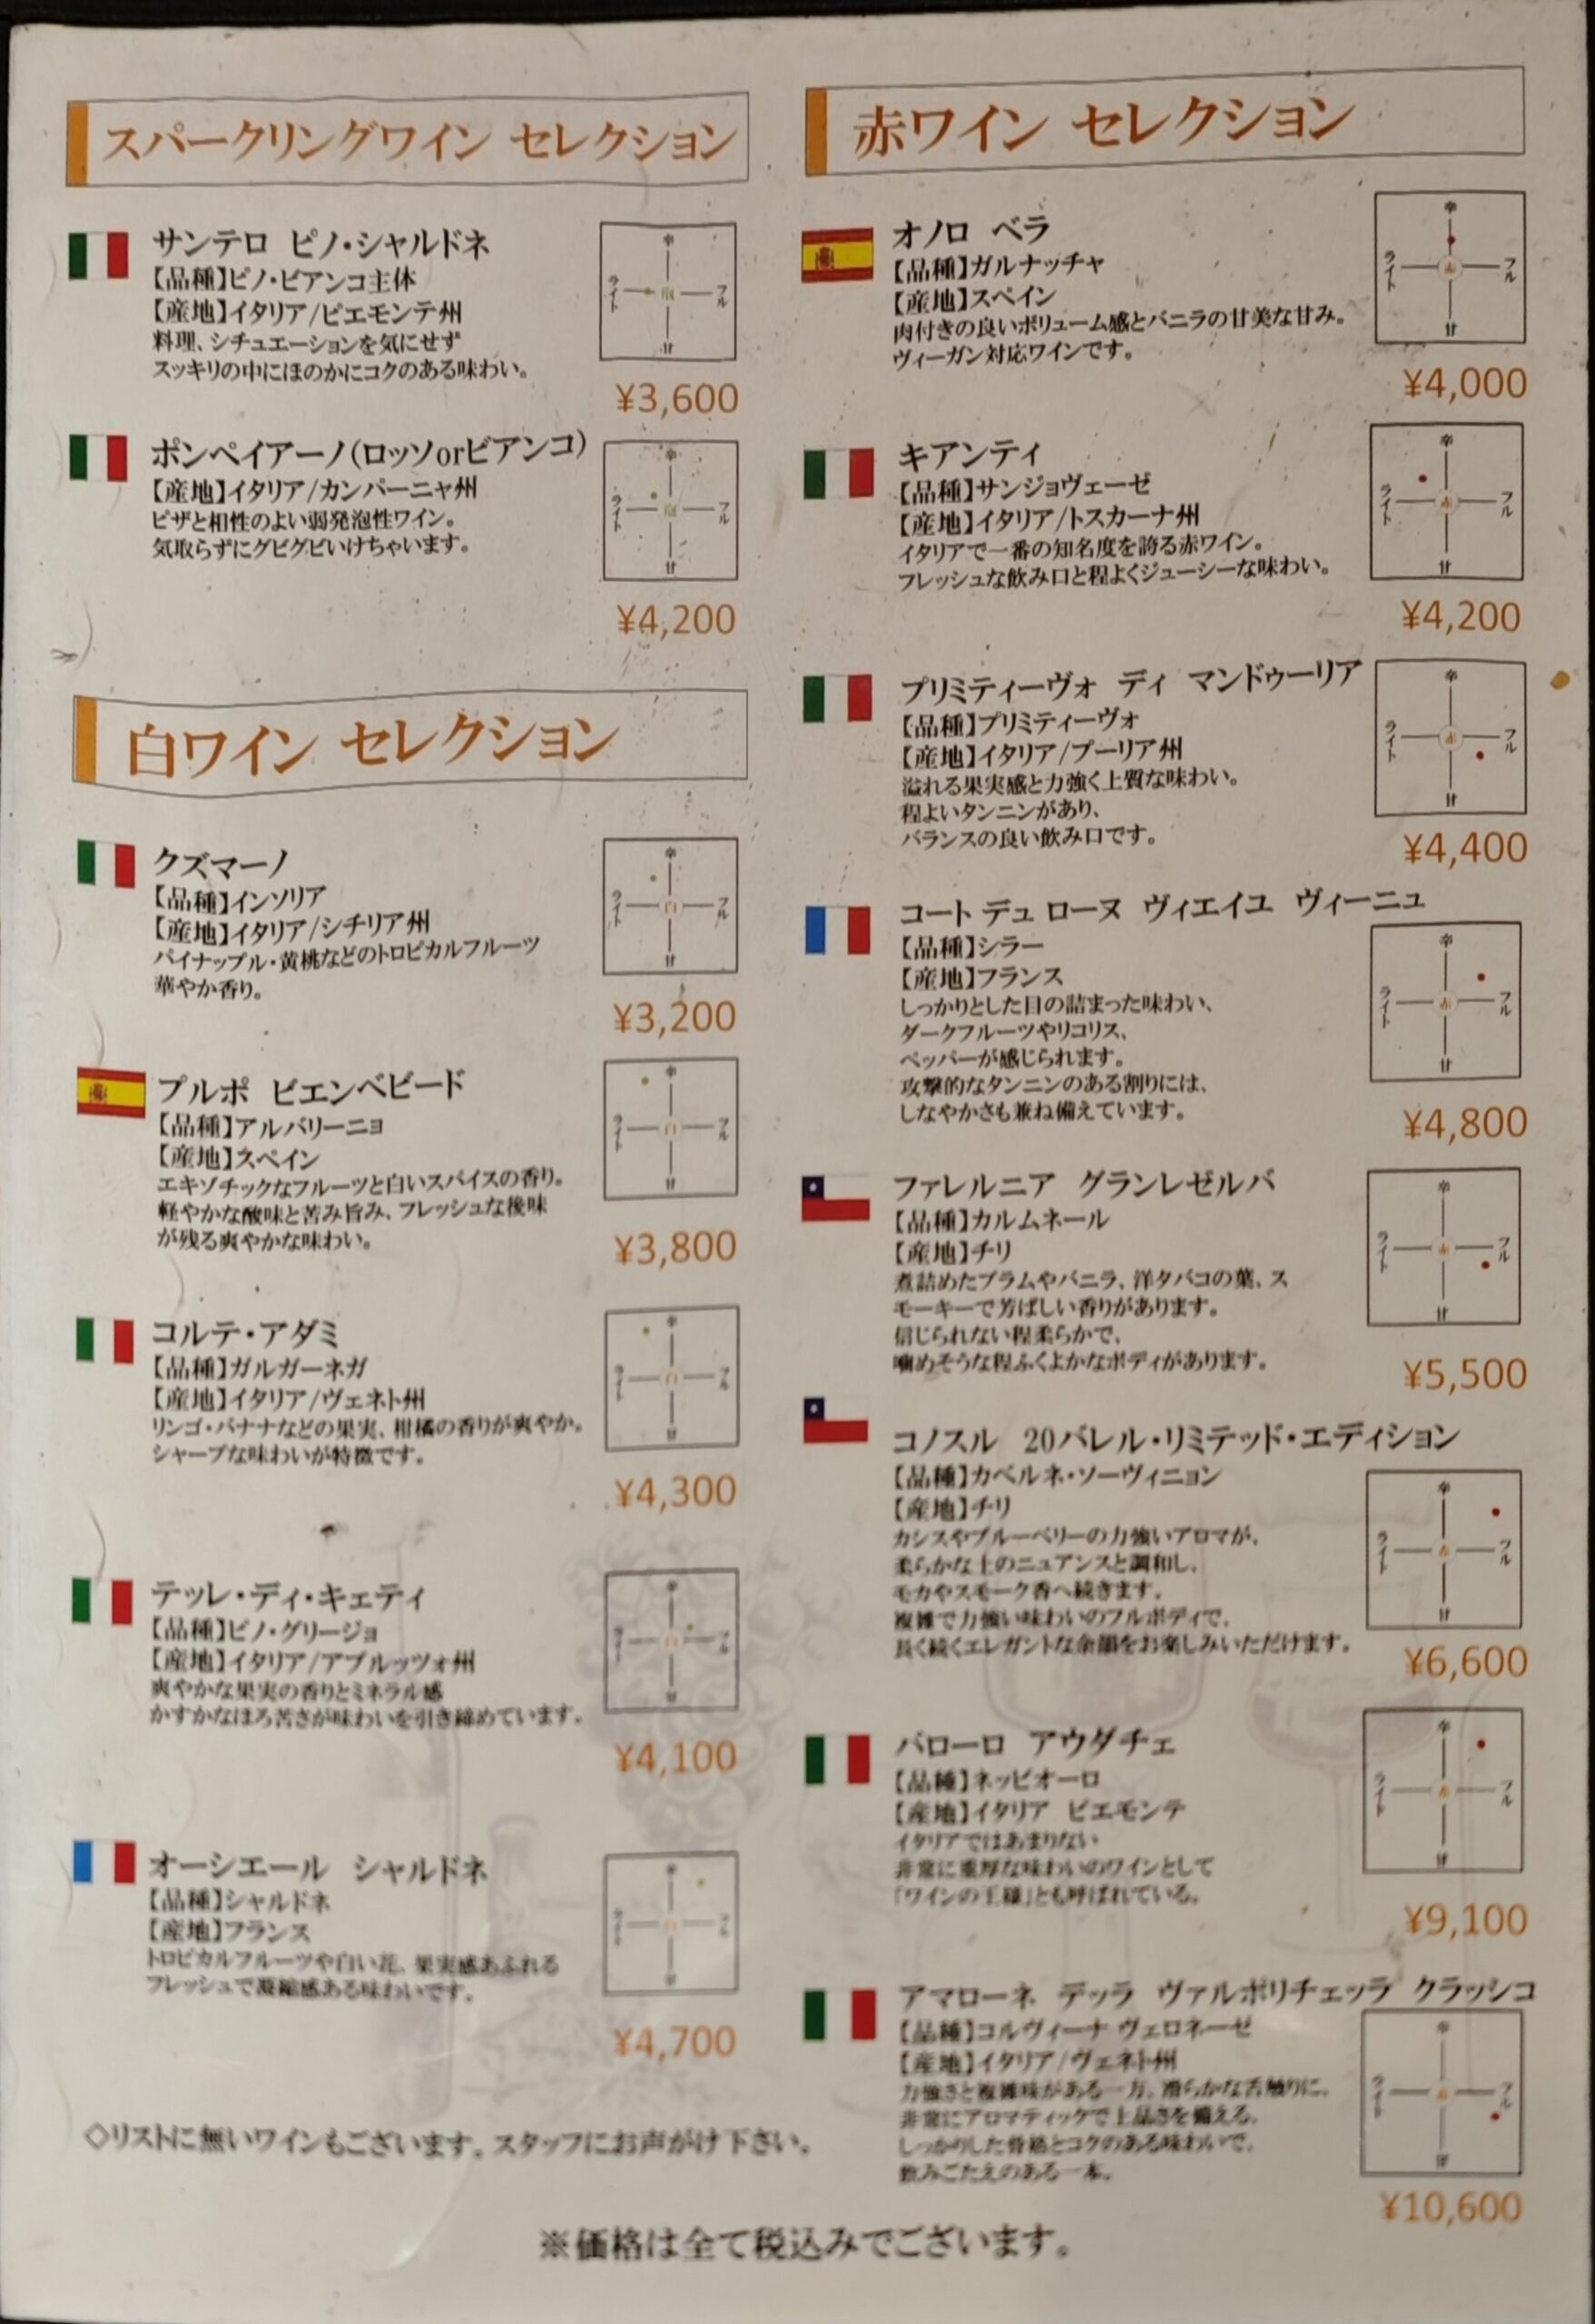 スパークリングワイン セレクション
サンテロ ピノ・シャルドネ
【品種】ピノ・ビアンコ主体
【産地】イタリア/ピエモンテ州
料理、シチュエーションを気にせず
スッキリの中にほのかにコクのある味わい。
辛
ライト
泡
フル
甘
¥3,600
ポンペイアーノ(ロッソorビアンコ)
【産地】イタリア/カンパーニャ州
ピザと相性のよい弱発泡性ワイン。
気取らずにグビグビいけちゃいます。
辛
ライト
泡
フル
甘
¥4,200
白ワイン セレクション
クズマーノ
【品種】インソリア
【産地】イタリア/シチリア州
パイナップル・黄桃などのトロピカルフルーツ
華やか香り。
辛
ライト
白
フル
甘
¥3,200
プルポ ビエンベビード
【品種】アルバリーニョ
【産地】スペイン
エキゾチックなフルーツと白いスパイスの香り。
軽やかな酸味と苦み旨み、フレッシュな後味
が残る爽やかな味わい。
辛
ライト
白
フル
甘
¥3,800
コルテ・アダミ
【品種】ガルガーネガ
【産地】イタリア/ヴェネト州
リンゴ・バナナなどの果実、柑橘の香りが爽やか。
シャープな味わいが特徴です。
辛
ライト
白
フル
甘
¥4,300
テッレ・ディ・キェティ
【品種】ピノ・グリージョ
【産地】イタリア/アブルッツォ州
爽やかな果実の香りとミネラル感
かすかなほろ苦さが味わいを引き締めています。
辛
ライト
白
フル
甘
¥4,100
オーシエール シャルドネ
【品種】シャルドネ
【産地】フランス
トロピカルフルーツや白い花、果実感あふれる
フレッシュで凝縮感ある味わいです。
辛
ライト
白
フル
甘
¥4,700
◇リストに無いワインもございます。スタッフにお声がけ下さい。
赤ワイン セレクション
オノロ ベラ
【品種】ガルナッチャ
【産地】スペイン
肉付きの良いボリューム感とバニラの甘美な甘み。
ヴィーガン対応ワインです。
辛
ライト
赤
フル
甘
¥4,000
キアンティ
【品種】サンジョヴェーゼ
【産地】イタリア/トスカーナ州
イタリアで一番の知名度を誇る赤ワイン。
フレッシュな飲み口と程よくジューシーな味わい。
辛
ライト
赤
フル
甘
¥4,200
プリミティーヴォ ディ マンドゥーリア
【品種】プリミティーヴォ
【産地】イタリア/プーリア州
溢れる果実感と力強く上質な味わい。
程よいタンニンがあり、
バランスの良い飲み口です。
辛
ライト
赤
フル
甘
¥4,400
コート デュ ローヌ ヴィエイユ ヴィーニュ
【品種】シラー
【産地】フランス
しっかりとした目の詰まった味わい、
ダークフルーツやリコリス、
ペッパーが感じられます。
攻撃的なタンニンのある割りには、
しなやかさも兼ね備えています。
辛
ライト
赤
フル
甘
¥4,800
ファレルニア グランレゼルバ
【品種】カルムネール
【産地】チリ
煮詰めたプラムやバニラ、洋タバコの葉、ス
モーキーで芳ばしい香りがあります。
信じられない程柔らかで、
噛めそうな程ふくよかなボディがあります。
辛
ライト
赤
フル
甘
¥5,500
コノスル 20バレル・リミテッド・エディション
【品種】カベルネ・ソーヴィニョン
【産地】チリ
カシスやブルーベリーの力強いアロマが、
柔らかな土のニュアンスと調和し、
モカやスモーク香へ続きます。
複雑で力強い味わいのフルボディで、
長く続くエレガントな余韻をお楽しみいただけます。
辛
ライト
赤
フル
甘
¥6,600
バローロ アウダチェ
【品種】ネッビオーロ
【産地】イタリア ピエモンテ
イタリアではあまりない
非常に重厚な味わいのワインとして
「ワインの王様」とも呼ばれている。
辛
ライト
赤
フル
甘
¥9,100
アマローネ デッラ ヴァルポリチェッラ クラッシコ
【品種】コルヴィーナ ヴェロネーゼ
【産地】イタリア/ヴェネト州
力強さと複雑味がある一方、滑らかな舌触りに、
非常にアロマティックで上品さを備える。
しっかりした骨格とコクのある味わいで、
飲みごたえのある一本。
辛
ライト
赤
フル
甘
¥10,600
※価格は全て税込みでございます。